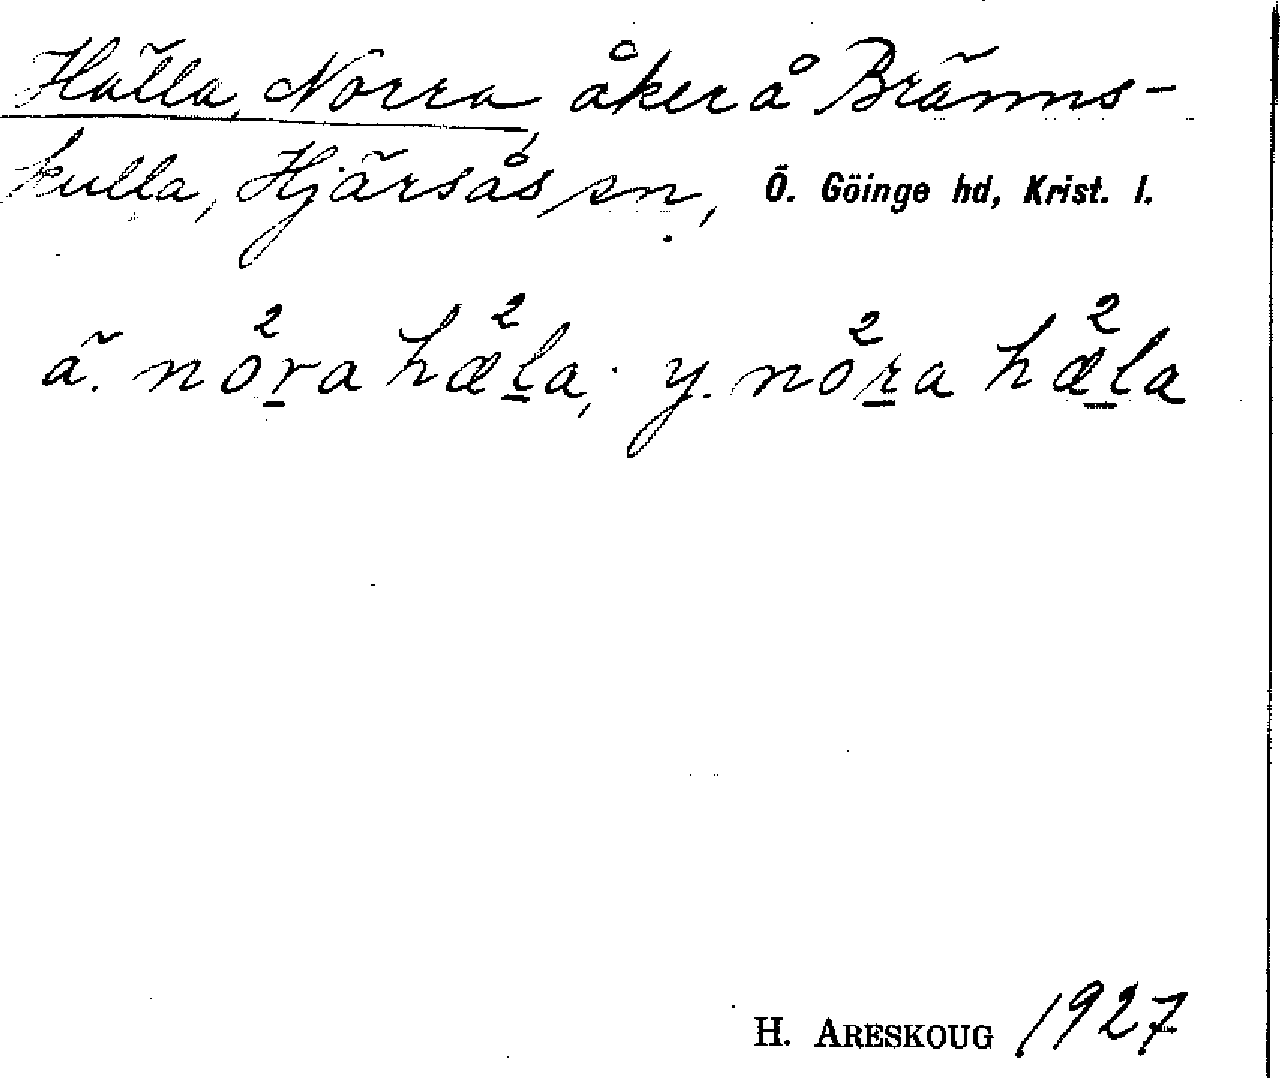 Hälla, Norra, åker å Bränns-
kulla, Hjärsås sn, Ö. Göinge hd, Krist. l.
ä. nå²r̲a hæ²l̲a; y. nå²r̲a hæ̲²la
H. ARESKOUG 1927